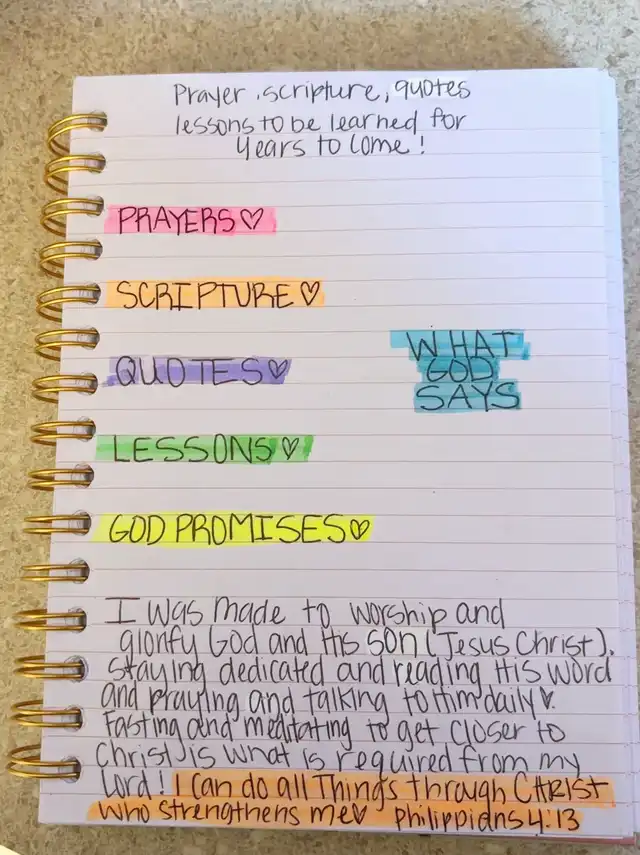 Prayer, scripture, quotes
lessons to be learned for
years to come!
PRAYERS♡
SCRIPTURE♡
QUOTES♡
WHAT
GOD
SAYS
LESSONS♡
GOD PROMISES♡
I was made to worship and
glorify God and His son (Jesus Christ).
Staying dedicated and reading His word
and praying and talking to Him daily♡.
Fasting and meditating to get closer to
Christ is what is required from my
Lord! I can do all Things through CHRIST
who strengthens me♡ Philippians 4:13